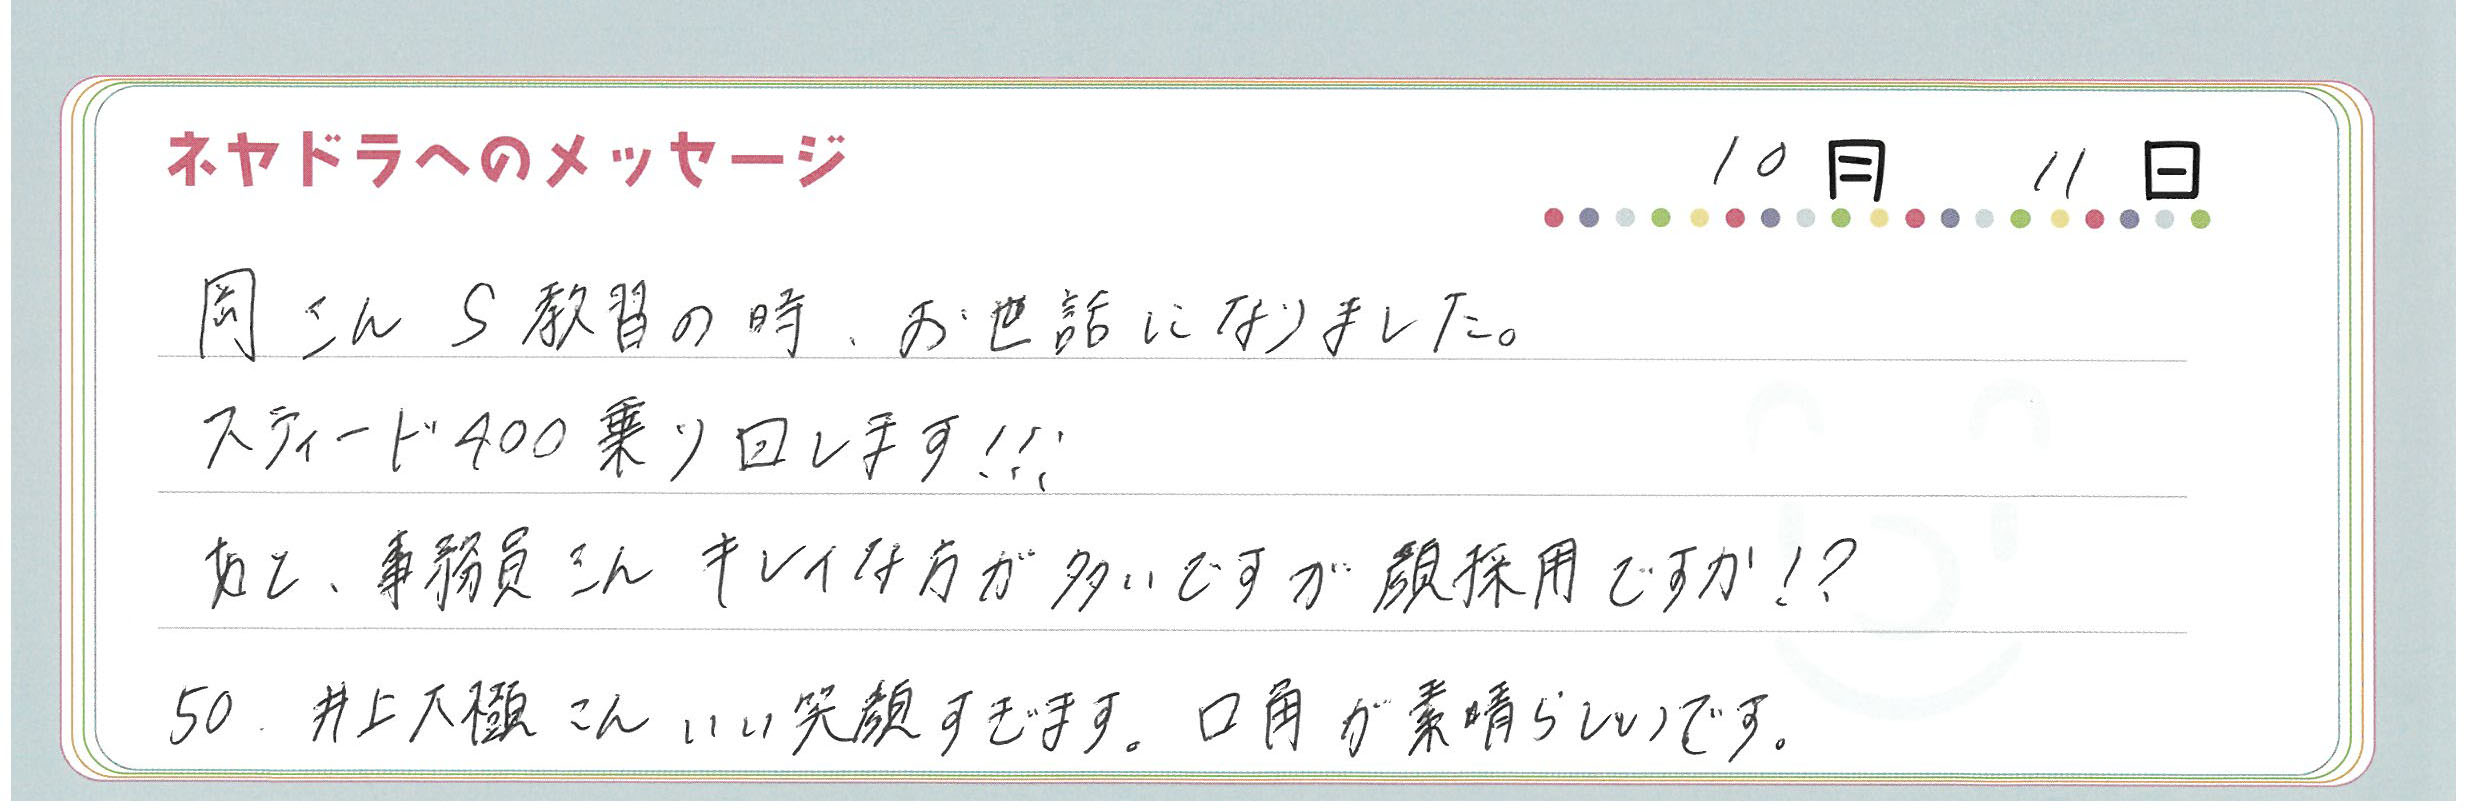 ネヤドラへのメッセージ
10月 11日
岡さん S教習の時、お世話になりました。
スティード400乗り回します!!!
あと、事務員さん キレイな方が多いですが顔採用ですか!?
50. 井上大樹さん いい笑顔すぎます。口角が素晴らしいです。